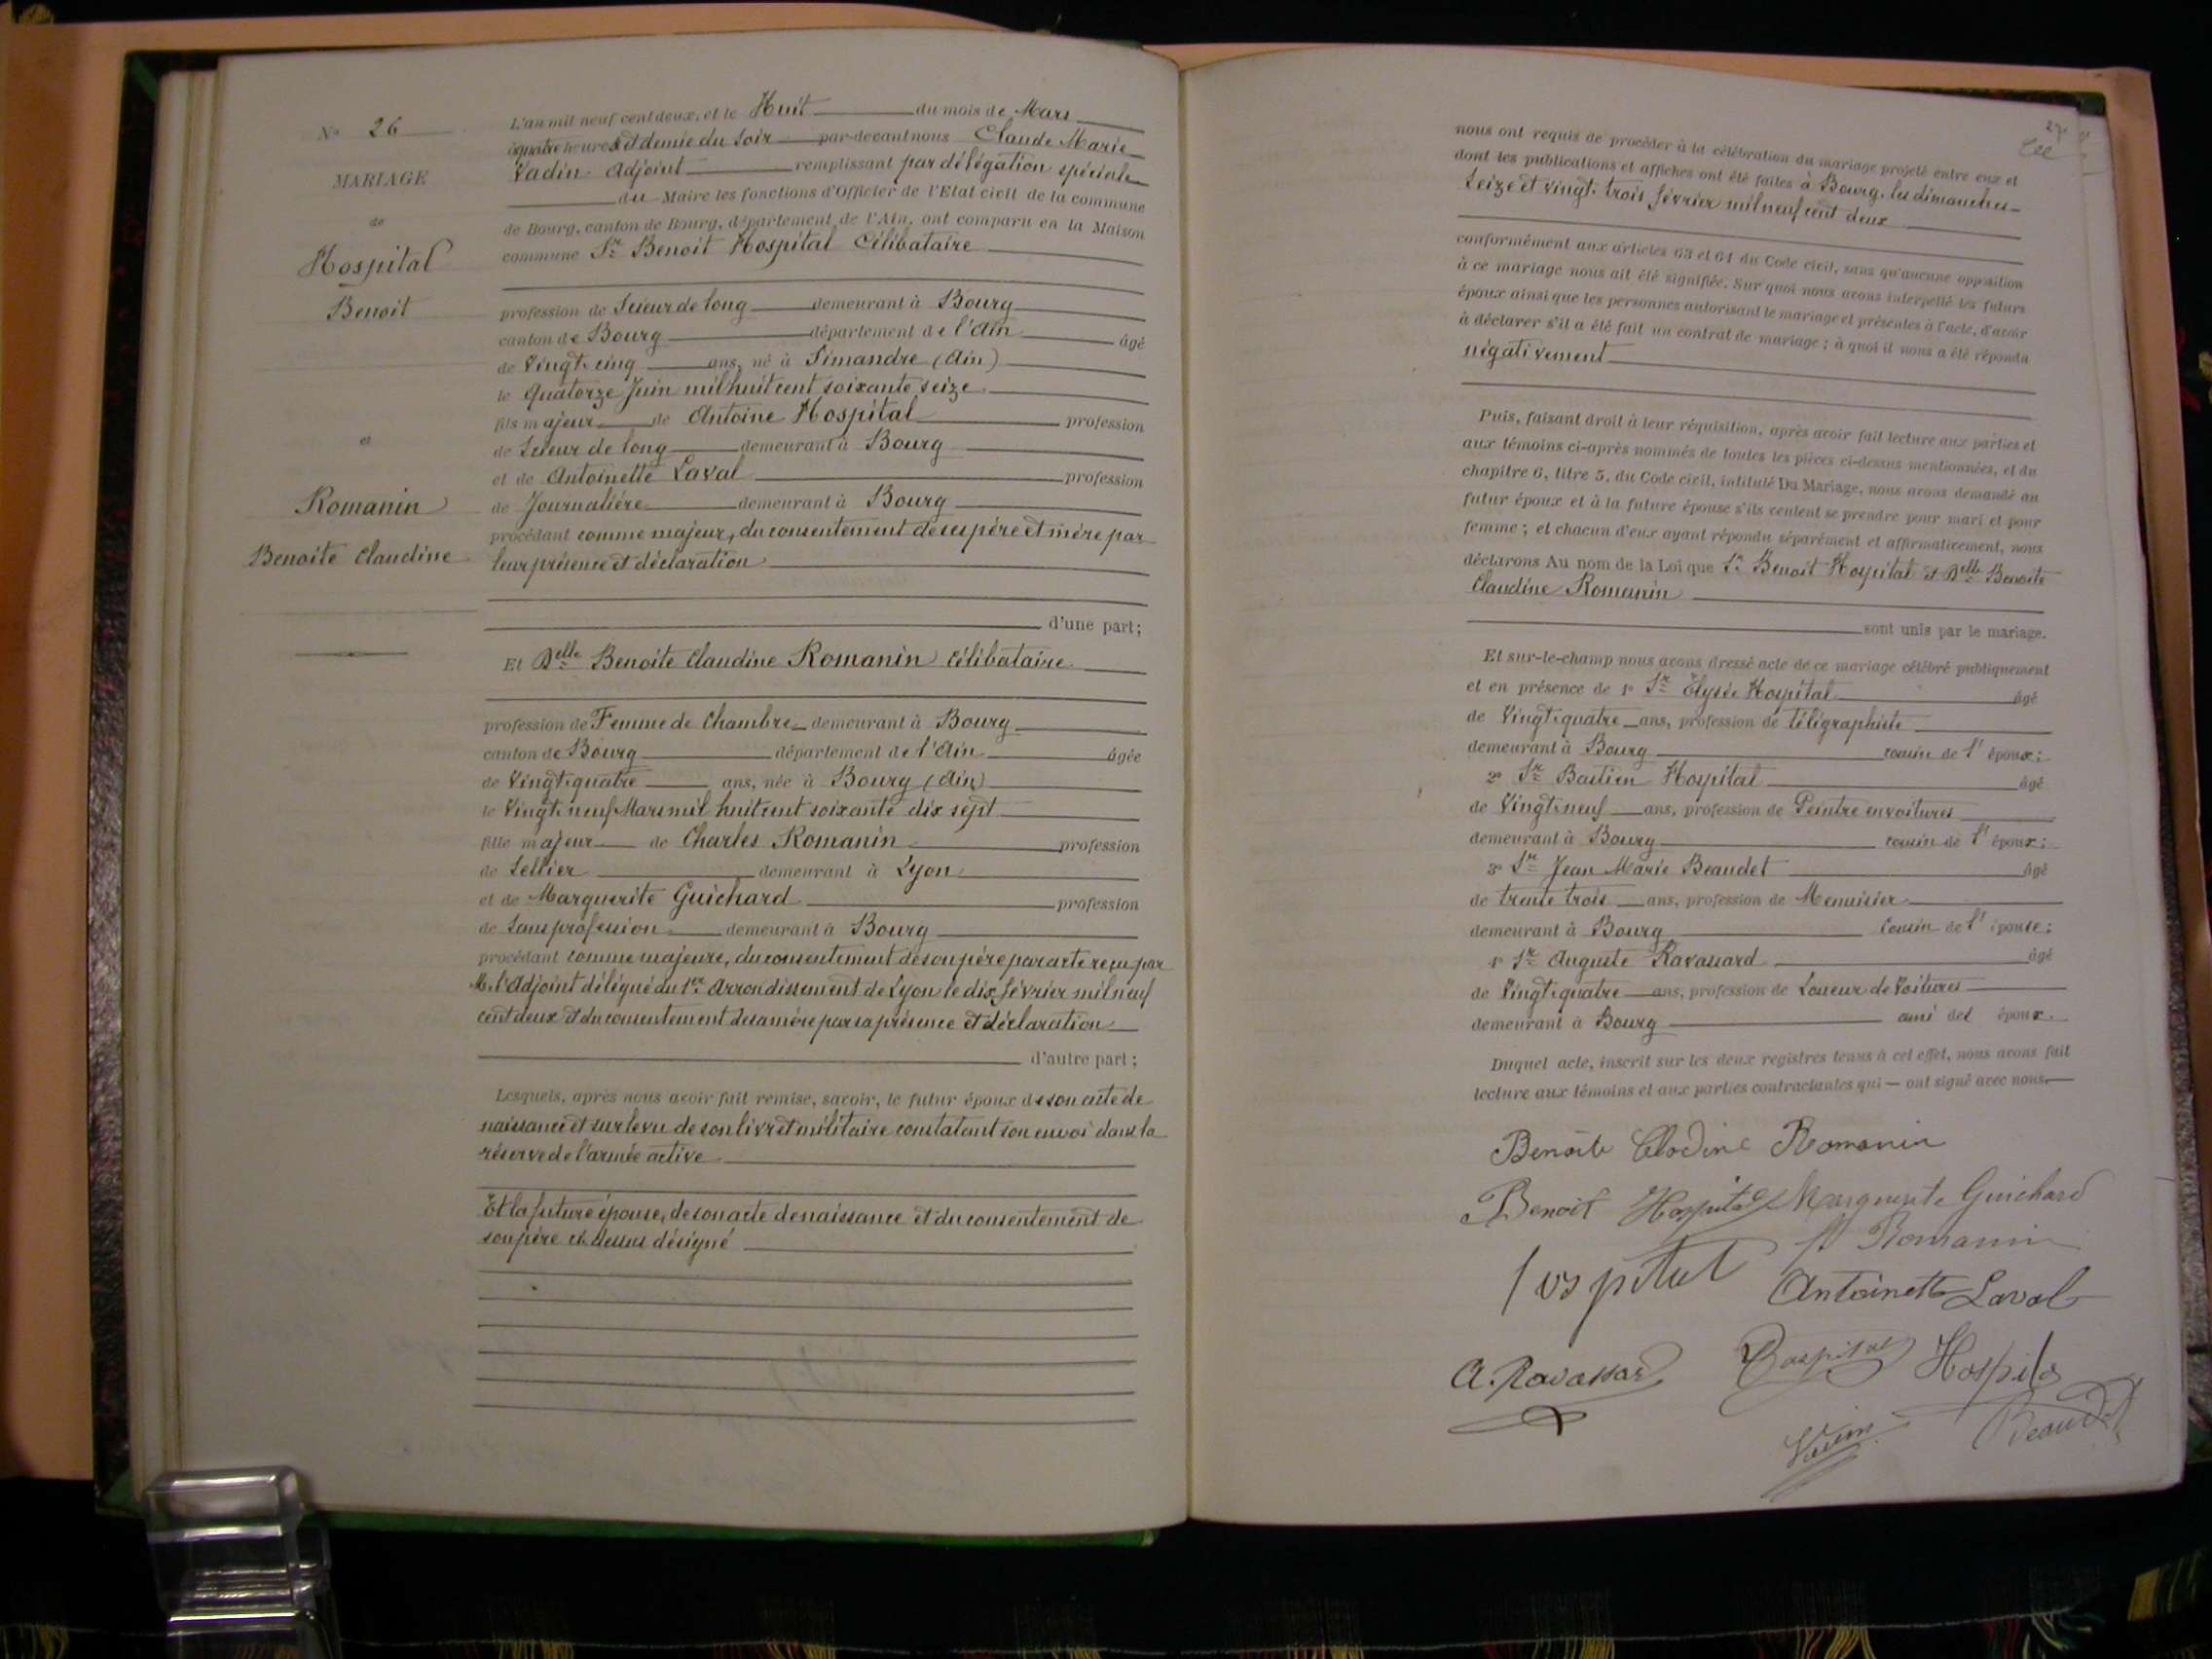 N° 26
MARIAGE
de
Hospital
Benoit
et
Romanin
Benoite Claudine
L'an mil neuf cent deux, et le Huit du mois de Mars
à quatre heures et demie du soir par-devant nous Claude Marie
Vadin Adjoint remplissant par délégation spéciale
du Maire les fonctions d'Officier de l'Etat civil de la commune
de Bourg, canton de Bourg, département de l'Ain, ont comparu en la Maison
commune Sr Benoit Hospital Célibataire
profession de Scieur de long demeurant à Bourg
canton de Bourg département de l'Ain âgé
de Vingt-cinq ans, né à Simandre (Ain)
le Quatorze Juin mil huit cent soixante seize
fils majeur de Antoine Hospital profession
de Scieur de long demeurant à Bourg
et de Antoinette Laval profession
de Journalière demeurant à Bourg
procédant comme majeur, du consentement de ses père et mère par
leur présence et déclaration
d'une part;
Et Delle Benoite Claudine Romanin célibataire
profession de Femme de Chambre demeurant à Bourg
canton de Bourg département de l'Ain âgée
de Vingt-quatre ans, née à Bourg (Ain)
le Vingt-neuf Mars mil huit cent soixante dix sept
fille majeur de Charles Romanin profession
de Sellier demeurant à Lyon
et de Marguerite Guichard profession
de Sans profession demeurant à Bourg
procédant comme majeure, du consentement de son père par acte reçu par
M. l'Adjoint délégué du 1er Arrondissement de Lyon le dix février mil neuf
cent deux et du consentement de sa mère par sa présence et déclaration
d'autre part;
Lesquels, après nous avoir fait remise, savoir, le futur époux de son acte de
naissance et sur le vu de son livret militaire constatant son envoi dans la
réserve de l'armée active
Et la future épouse, de son acte de naissance et du consentement de
son père ci-dessus désigné
27
nous ont requis de procéder à la célébration du mariage projeté entre eux et
dont les publications et affiches ont été faites à Bourg, les dimanches
seize et vingt-trois février mil neuf cent deux
conformément aux articles 63 et 64 du Code civil, sans qu'aucune opposition
à ce mariage nous ait été signifiée. Sur quoi nous avons interpellé les futurs
époux ainsi que les personnes autorisant le mariage et présentes à l'acte, d'avoir
à déclarer s'il a été fait un contrat de mariage; à quoi il nous a été répondu
négativement
Puis, faisant droit à leur réquisition, après avoir fait lecture aux parties et
aux témoins ci-après nommés de toutes les pièces ci-dessus mentionnées, et du
chapitre 6, titre 5, du Code civil, intitulé Du Mariage, nous avons demandé au
futur époux et à la future épouse s'ils veulent se prendre pour mari et pour
femme; et chacun d'eux ayant répondu séparément et affirmativement, nous
déclarons Au nom de la Loi que Sr Benoit Hospital et Delle Benoite
Claudine Romanin
sont unis par le mariage.
Et sur-le-champ nous avons dressé acte de ce mariage célébré publiquement
et en présence de 1° Sr Elysée Hospital âgé
de Vingt-quatre ans, profession de télégraphiste
demeurant à Bourg cousin de l'époux;
2° Sr Bastien Hospital âgé
de Vingt-neuf ans, profession de Peintre en voitures
demeurant à Bourg cousin de l'époux;
3° Sr Jean Marie Beaudet âgé
de trente trois ans, profession de Menuisier
demeurant à Bourg cousin de l'épouse;
4° Sr Auguste Ravassard âgé
de Vingt-quatre ans, profession de Loueur de Voitures
demeurant à Bourg ami de l'époux.
Duquel acte, inscrit sur les deux registres tenus à cet effet, nous avons fait
lecture aux témoins et aux parties contractantes qui — ont signé avec nous
Benoite Clodine Romanin
Benoit Hospital Marguerite Guichard
Romanin
Hospital Antoinette Laval
A. Ravassard Hospital Hospital
Vadin Beaudet